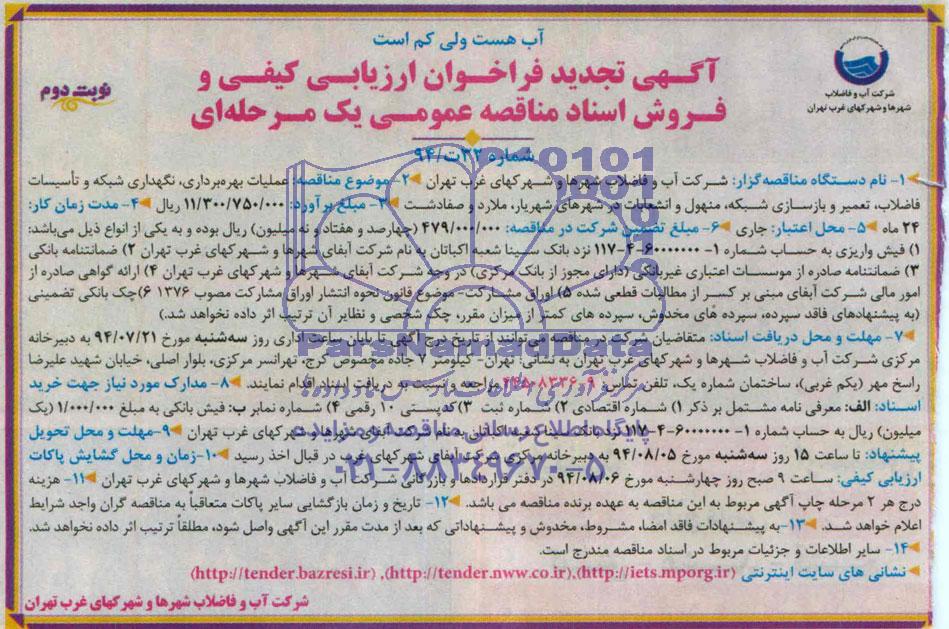 آب هست ولی کم است
آگهی تجدید فراخوان ارزیابی کیفی و
فروش اسناد مناقصه عمومی یک مرحله‌ای
نوبت دوم
شرکت آب و فاضلاب
شهرها و شهرکهای غرب تهران
شماره ۳۲ت/۹۴
۱- نام دستگاه مناقصه‌گزار: شرکت آب و فاضلاب شهرها و شهرکهای غرب تهران ۲- موضوع مناقصه: عملیات بهره‌برداری، نگهداری شبکه و تأسیسات
فاضلاب، تعمیر و بازسازی شبکه، منهول و انشعابات در شهرهای شهریار، ملارد و صفادشت ۳- مبلغ برآورد: ۱۱/۳۰۰/۷۵۰/۰۰۰ ریال ۴- مدت زمان کار:
۲۴ ماه ۵- محل اعتبار: جاری ۶- مبلغ تضمین شرکت در مناقصه: ۴۷۹/۰۰۰/۰۰۰ (چهارصد و هفتاد و نه میلیون) ریال بوده و به یکی از انواع ذیل می‌باشد:
۱) فیش واریزی به حساب شماره ۱-۶۰۰۰۰۰۰۰-۴-۱۱۷ نزد بانک سینا شعبه اکباتان به نام شرکت آبفای شهرها و شهرکهای غرب تهران ۲) ضمانتنامه بانکی
۳) ضمانتنامه صادره از موسسات اعتباری غیربانکی (دارای مجوز از بانک مرکزی) در وجه شرکت آبفای شهرها و شهرکهای غرب تهران ۴) ارائه گواهی صادره از
امور مالی شرکت آبفای مبنی بر کسر از مطالبات قطعی شده ۵) اوراق مشارکت- موضوع قانون نحوه انتشار اوراق مشارکت مصوب ۱۳۷۶ ۶)چک بانکی تضمینی
(به پیشنهادهای فاقد سپرده، سپرده های مخدوش، سپرده های کمتر از میزان مقرر، چک شخصی و نظایر آن ترتیب اثر داده نخواهد شد.)
۷- مهلت و محل دریافت اسناد: متقاضیان شرکت در مناقصه می‌توانند از تاریخ درج آگهی تا پایان ساعت اداری روز سه‌شنبه مورخ ۹۴/۰۷/۲۱ به دبیرخانه
مرکزی شرکت آب و فاضلاب شهرها و شهرکهای غرب تهران به نشانی: تهران- کیلومتر ۷ جاده مخصوص کرج، تهرانسر مرکزی، بلوار اصلی، خیابان شهید علیرضا
راسخ مهر (یکم غربی)، ساختمان شماره یک، تلفن تماس: ۹-۴۴۵۰۸۳۳۶ مراجعه و نسبت به دریافت اسناد اقدام نمایند. ۸- مدارک مورد نیاز جهت خرید
اسناد: الف: معرفی نامه مشتمل بر ذکر ۱) شماره اقتصادی ۲) شماره ثبت ۳)کدپستی ۱۰ رقمی ۴) شماره نمابر ب: فیش بانکی به مبلغ ۱/۰۰۰/۰۰۰ (یک
میلیون) ریال به حساب شماره ۱-۶۰۰۰۰۰۰۰-۴-۱۱۷ نزد بانک سینا شعبه اکباتان به نام شرکت آبفای شهرها و شهرکهای غرب تهران ۹-مهلت و محل تحویل
پیشنهاد: تا ساعت ۱۵ روز سه‌شنبه مورخ ۹۴/۰۸/۰۵ به دبیرخانه مرکزی شرکت آبفای شهرکهای غرب در قبال اخذ رسید ۱۰-زمان و محل گشایش پاکات
ارزیابی کیفی: ساعت ۹ صبح روز چهارشنبه مورخ ۹۴/۰۸/۰۶ در دفتر قراردادها و بازرگانی شرکت آب و فاضلاب شهرها و شهرکهای غرب تهران ۱۱- هزینه
درج هر ۲ مرحله چاپ آگهی مربوط به این مناقصه به عهده برنده مناقصه می باشد. ۱۲- تاریخ و زمان بازگشایی سایر پاکات متعاقباً به مناقصه گران واجد شرایط
اعلام خواهد شد. ۱۳-به پیشنهادات فاقد امضا، مشروط، مخدوش و پیشنهاداتی که بعد از مدت مقرر این آگهی واصل شود، مطلقاً ترتیب اثر داده نخواهد شد.
۱۴- سایر اطلاعات و جزئیات مربوط در اسناد مناقصه مندرج است.
نشانی های سایت اینترنتی (http://iets.mporg.ir)،(http://tender.nww.co.ir)، (http://tender.bazresi.ir)
شرکت آب و فاضلاب شهرها و شهرکهای غرب تهران
ParsNamadData
پایگاه اطلاع رسانی مناقصه و مزایده
۰۲۱-۸۸۳۴۹۶۷۰-۵